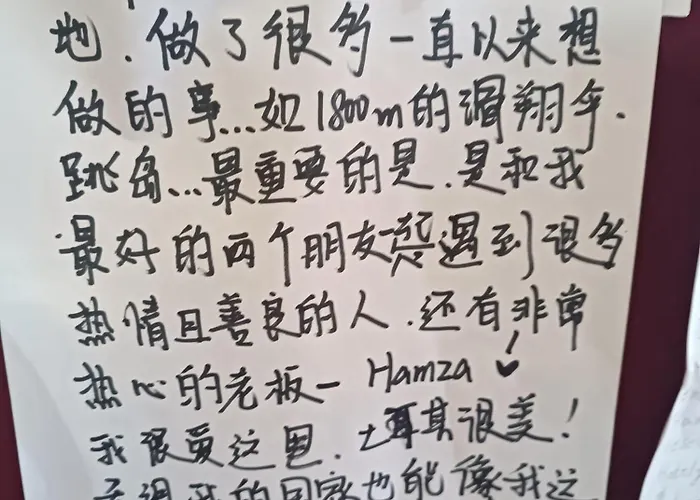 地.做了很多一直以来想
做的事...如1800m的滑翔伞.
跳岛...最重要的是.是和我
最好的两个朋友一起遇到很多
热情且善良的人.还有非常
热心的老板— Hamza
我很爱这里.土耳其很美!
我的国家也能像我这